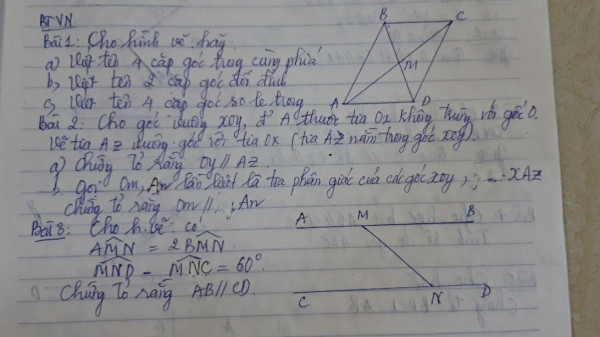 BTVN
B C
Bài 1: Cho hình vẽ hãy
a) Viết tên 4 cặp góc trong cùng phía
b, Viết tên 2 cặp góc đối đỉnh
M
c, Viết tên 4 cặp góc so le trong
A D
Bài 2: Cho góc vuông xOy, A thuộc tia Ox không trùng với gốc O.
Vẽ tia Az vuông góc với tia Ox (tia Az nằm trong góc xOy).
a) Chứng tỏ rằng Oy // Az
b, gọi Om, An lần lượt là tia phân giác của các góc xOy, xAz
Chứng tỏ rằng Om // An
Bài 3: Cho h. vẽ có
A M B
AMN = 2 BMN
MND - MNC = 60°
Chứng tỏ rằng AB // CD.
C N D